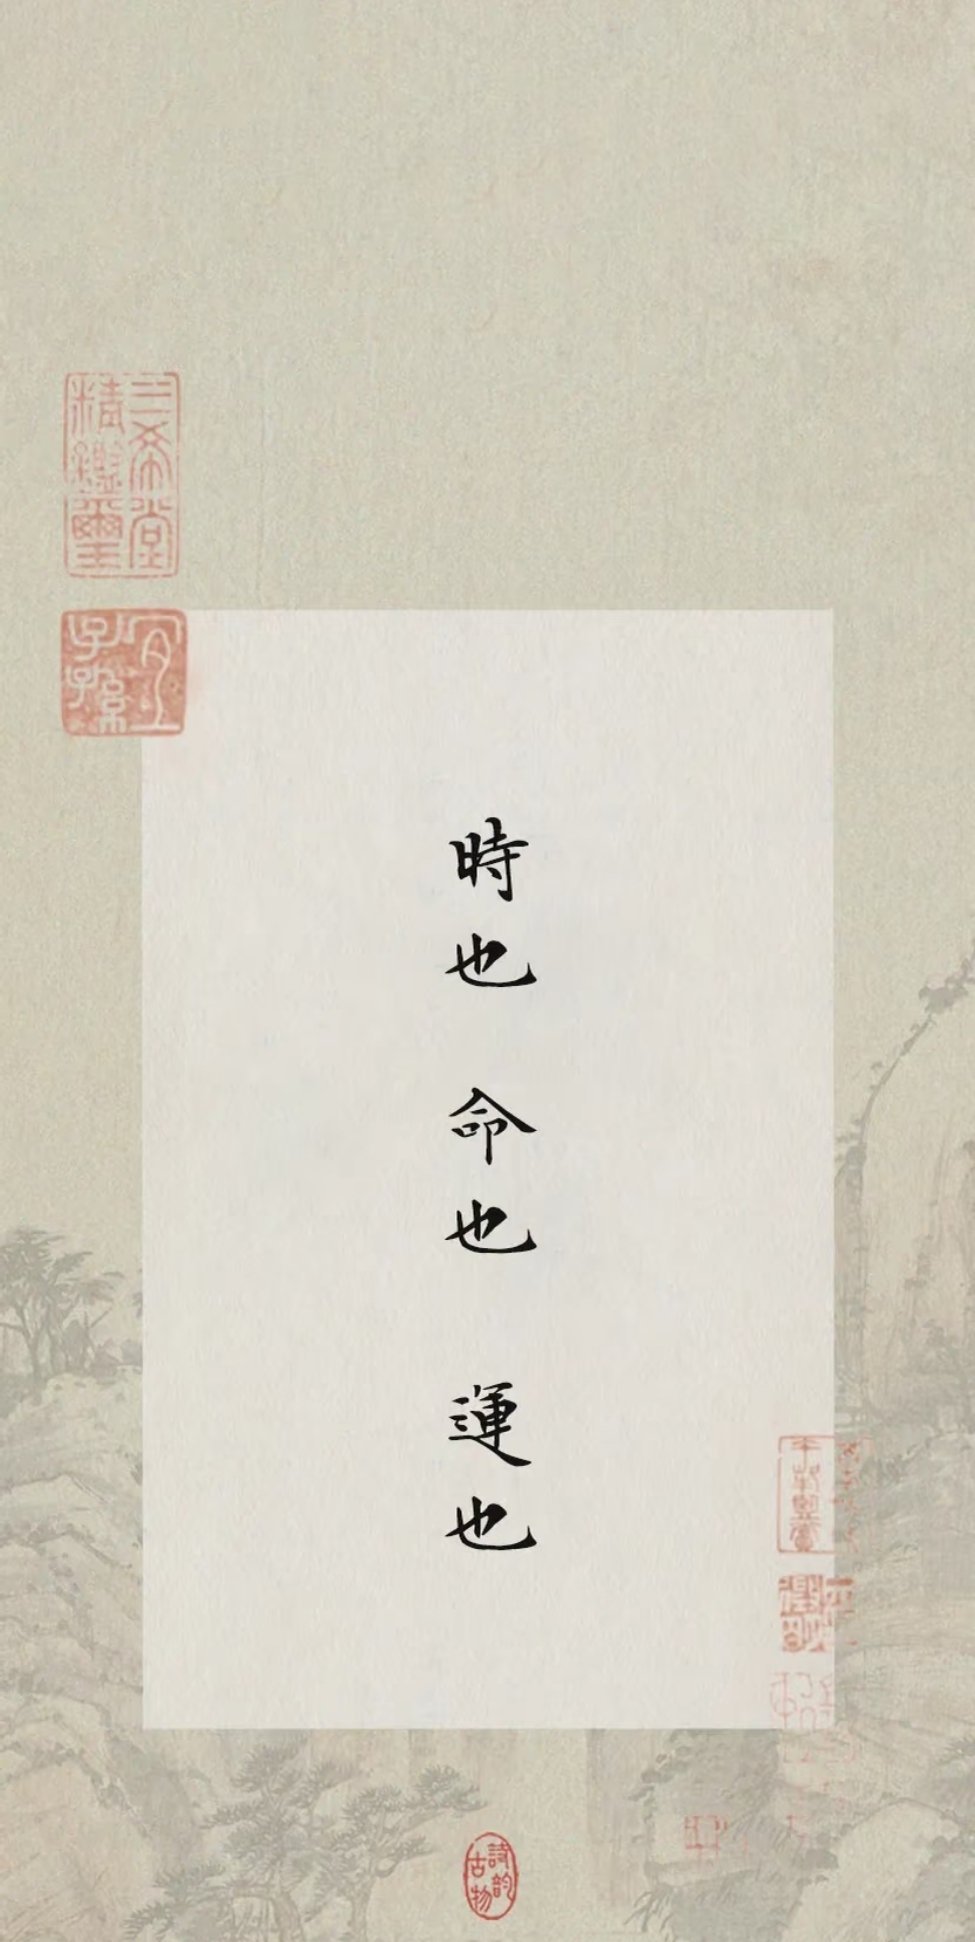 三希堂
精鑑璽
宜
子孫
時也 命也 運也
詩韵
古物